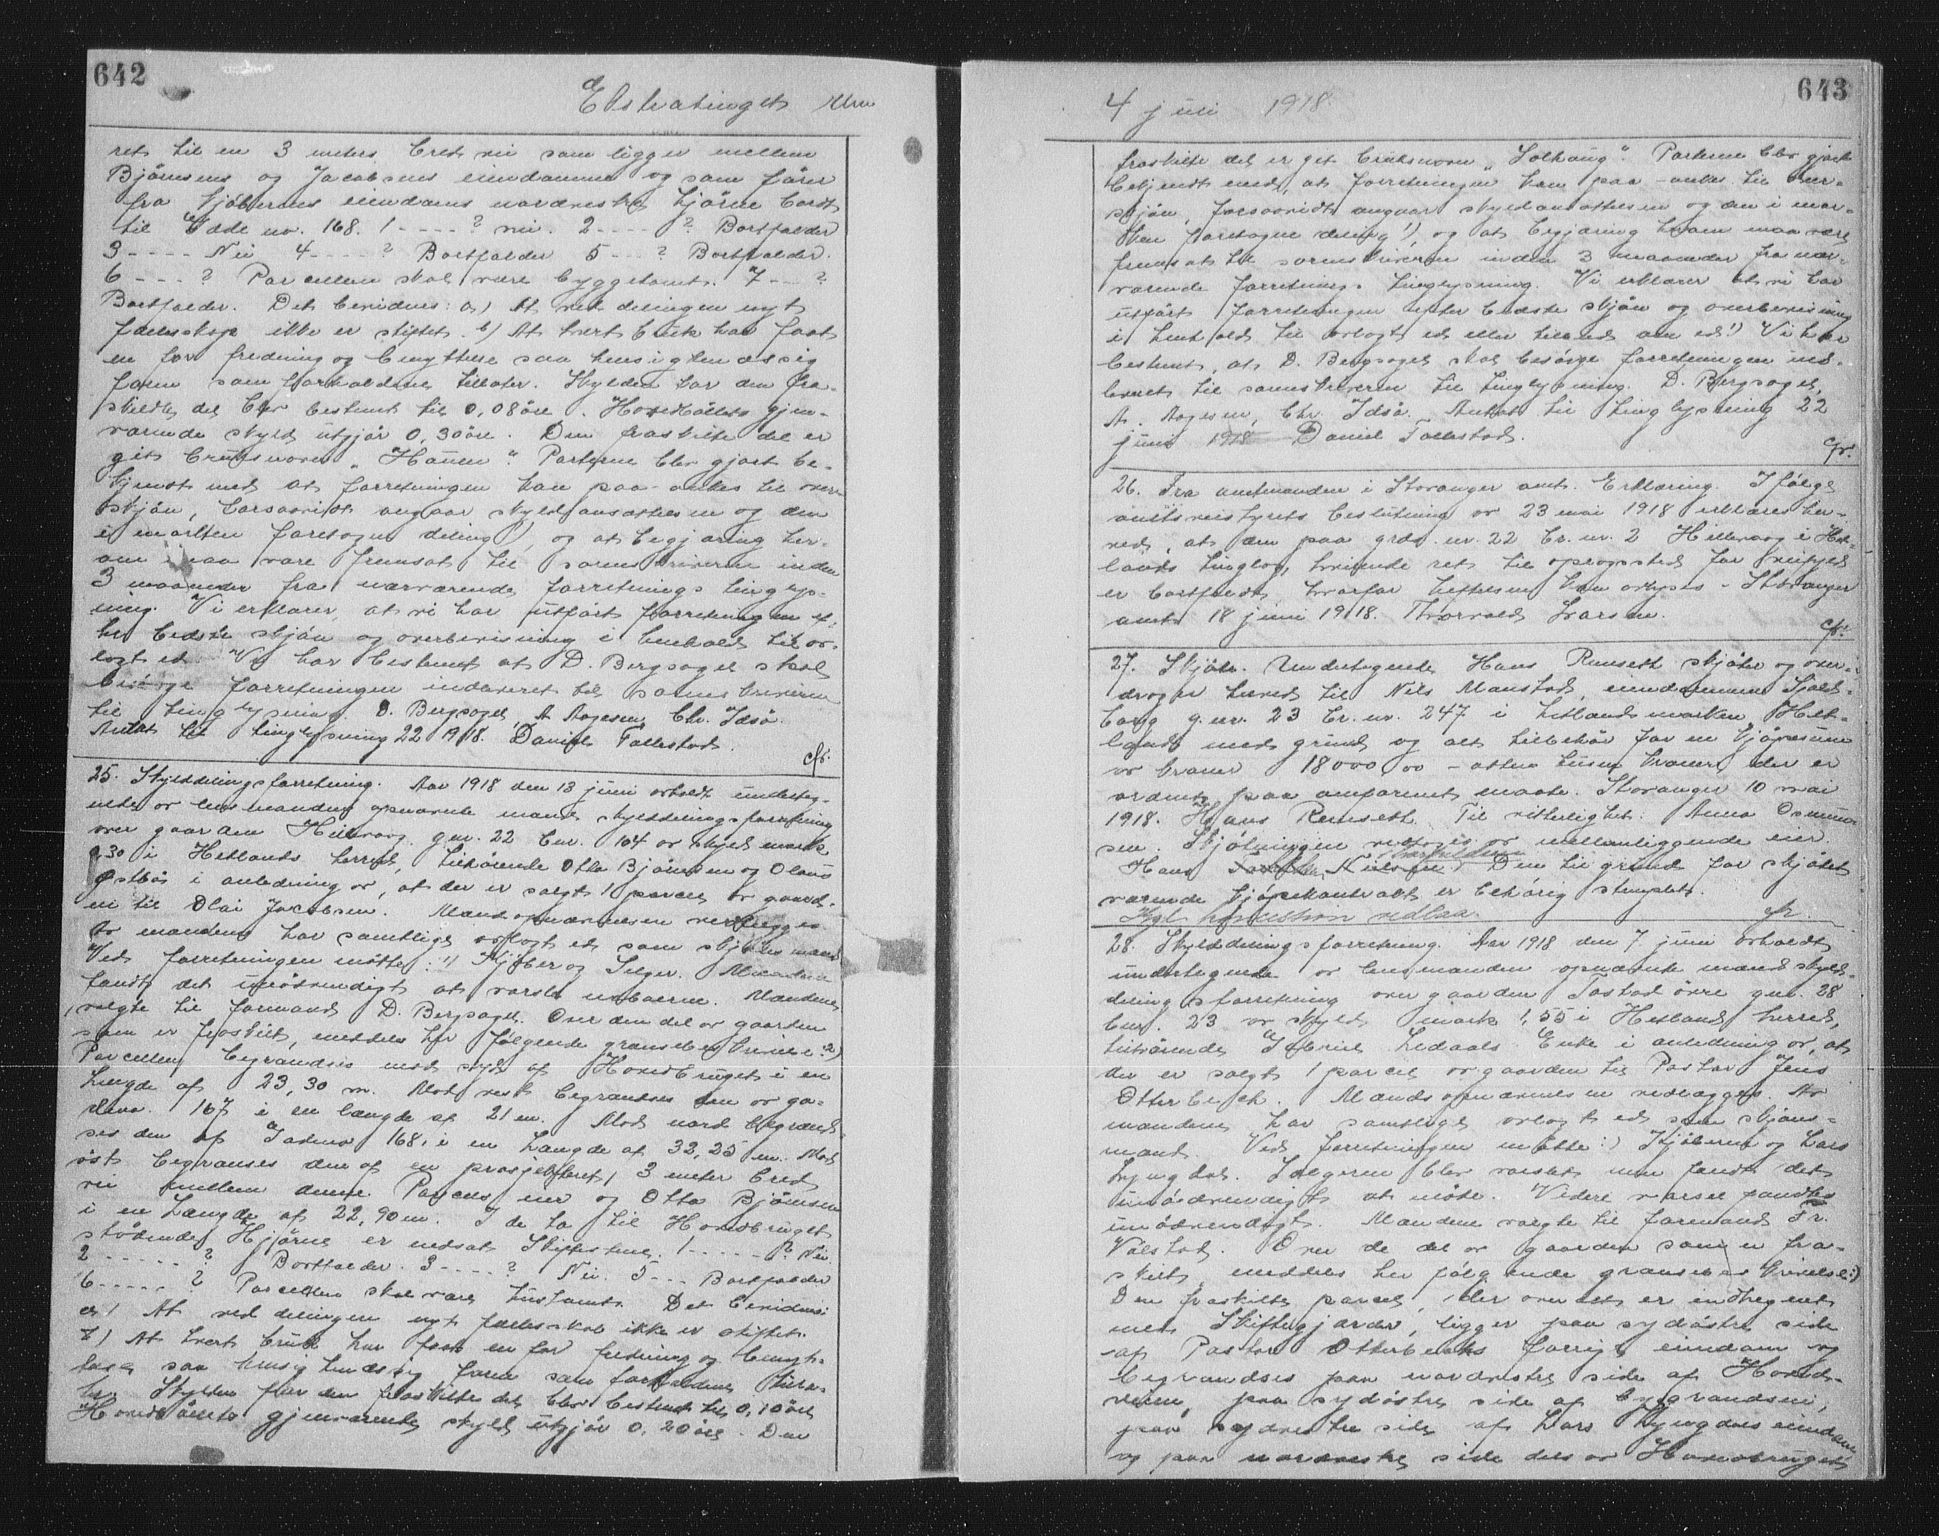 642
Ekstratinget
ret til en 3 meters bred vei som ligger mellem
Bjørnsens og Jacobsens eiendomme og som fører
fra kjøberens eiendoms nordvestre hjørne bort
til no. 168. 1 - - - - ? nei. 2 - - - - ? Bortfalder
3 - - - - Nei 4 - - - - ? Bortfalder 5 - - - ? Bortfalder.
6 - - - ? Parcellen skal være byggetomt. 7 - - ?
Bortfalder. Det bevidnes: a) At ved delingen nyt
fællesskap ikke er stiftet. b) At hvert bruk har faat
en for fredning og benyttelse saa hensigtsmæssig
form som forholdene tillater. Skylden for den fra-
skildte del blev bestemt til 0,08 øre. Hovedbølets gjen-
værende skyld utgjør 0,30 øre. Den fraskilte del er
git bruksnavn „Hauen“. Parterne blev gjort be-
kjendt med at forretningen kan paa-ankes til over-
skjøn, forsaavidt angaar skyldansættelsen og den
i marken foretagne deling!), og at begjæring her-
om maa være fremsat til sorenskriveren inden
3 maaneder fra nærværende forretnings tinglys-
ning. Vi erklærer, at vi har utført forretningen ef-
ter bedste skjøn og overbevisning i henhold til av-
lagt ed. Vi har bestemt at D. Bergsagel skal
besørge forretningen indleveret til sorenskriveren
til tinglysning. D. Bergsagel, A. Aagesen, Chr. Idsø.
Antat til tinglysning 22 1918. Daniel Fallestad.
25. Skylddelingsforretning. Aar 1918 den 13 juni avholdt underteg-
nede av lensmanden opnævnte mænd skylddelingsforretning
over gaarden Hillevaag gnr. 22 bnr. 164 av skyld mark
0,30 i Hetlands herred, tilhørende Otto Bjørnsen og Olaus
Østbø i anledning av, at der er solgt 1 parcel av gaard-
en til Olai Jacobsen. Mandsopnævnelsen vedlægges.
Av mændene har samtlige avlagt ed som skjønsmænd.
Ved forretningen møtte: 1) Kjøber og Selger. Mændene
fandt det unødvendigt at varsle naboerne. Mændene
valgte til formand D. Bergsagel. Over den del av gaarden
som er fraskilt, meddeles her følgende grænsebeskrivelse: 2)
Parcellen begrændses mod syd af Hovedbruget i en
Længde af 23,30 m. Mod vest begrændses den av ga-
deno. 167 i en længde af 21 m. Mod nord begrænd-
ses den af Gadeno 168, i en Længde af 32,25 m. Mod
øst begrænses den af en prosjekteret, 3 meter bred
vei mellem denne Parcels eier og Otto Bjørnsen
i en Længde af 22,90 m. I de to til Hovedbruget
stødende Hjørner er nedsat Skiftestene. 1 - - - - - ? Nei.
2 - - - - - ? Bortfalder. 3 - - - - ? Nei. 5 - - - Bortfalder
6 - - - - - ? Parcellen skal være hustomt. Det bevidnes:
a) At ved delingen nyt fællesskab ikke er stiftet.
b) At hvert bruk har faat en for fredning og benyt-
telse saa hensigtsmæssig form som forholdene tilla-
ter. Skylden for den fraskilte del blev bestemt til 0,10 øre
Hovedbølets gjenværende skyld utgjør 0,20 øre. Den
643
4 juli 1918
fraskilte del er git bruksnavn „Solhaug“. Parterne blev gjort
bekjendt med, at forretningen kan paa-ankes til over-
skjøn, forsaavidt angaar skyldansættelsen og den i mar-
ken foretagne deling!), og at begjæring herom maa være
fremsat til sorenskriveren inden 3 maaneder fra nær-
værende forretnings tinglysning. Vi erklærer at vi har
utført forretningen efter bedste skjøn og overbevisning
i henhold til avlagt ed eller tilbud om ed!) Vi har
bestemt, at D. Bergsagel skal besørge forretningen ind-
levert til sorenskriveren til tinglysning. D. Bergsagel,
A. Aagesen, Chr. Idsø. Antat til tinglysning 22
juni 1918 Daniel Fallestad.
26. Fra amtmanden i Stavanger amt. Erklæring. Ifølge
amtsveistyrets beslutning av 23 mai 1918 erklæres her-
ved, at den paa grds. nr. 22 br. nr. 2 Hillevaag i Het-
lands tinglag, hvilende ret til opragsted for veifyld
er bortfaldt, hvorfor heftelsen kan avlyses - Stavanger
amt 18 juni 1918. Thorvald Larsen.
27. Skjøte. Undertegnede Hans Remseth skjøter og over-
drager herved til Nils Maustad, eiendommen Sjold-
borg g.nr. 23 br. nr. 247 i Hetlandsmarken, Het-
land med grund og alt tilbehør for en kjøpesum
av kroner 18000,00 - atten tusen kroner, der er
ordnet paa omforenet maate. Stavanger 10 mai
1918. Hans Remseth. Til vitterlighet: Anna Osmund-
sen. Skjøtningen vedtages av mellemliggende eier
Hans Nielsen. Den til grund for skjøtet
værende kjøpekontrakt er behørig stemplet.
Kgl. konsesjon vedlaa.
28. Skylddelingsforretning. Aar 1918 den 7 juni avholdt
undertegnede av lensmanden opnævnte mænd skyld-
delingsforretning over gaarden Tastad øvre gnr. 28
bnr. 23 av skyld mark 1,55 i Hetland herred,
tilhørende Gabriel Lidaals Enke i anledning av, at
der er solgt 1 parcel av gaarden til Pastor Jens
Otterbech. Mandsopnævnelsen vedlægges. Av
mændene har samtlige avlagt ed som skjøns-
mænd. Ved forretningen møtte: 1) Kjøberen og Lars
Lyngdal. Sælgeren blev varslet men fandt det
unødvendigt at møde. Videre varsel fandtes
unødvendigt. Mændene valgte til formand Fr.
Volstad. Over de del av gaarden som er fra-
skilt, meddeles her følgende grænsebeskrivelse: 2)
Den fraskilte parcel, der overalt er indhegnet
med Skiftegjærder, ligger paa sydøstre side
af Pastor Otterbechs forrige eiendom og
begrændses paa nordøstre side af Hoved-
veien, paa sydøstre side af bygrændsen,
paa sydvestre side af Lars Lyngdals eiendom
og paa nordvestre side dels av Hovedbruget